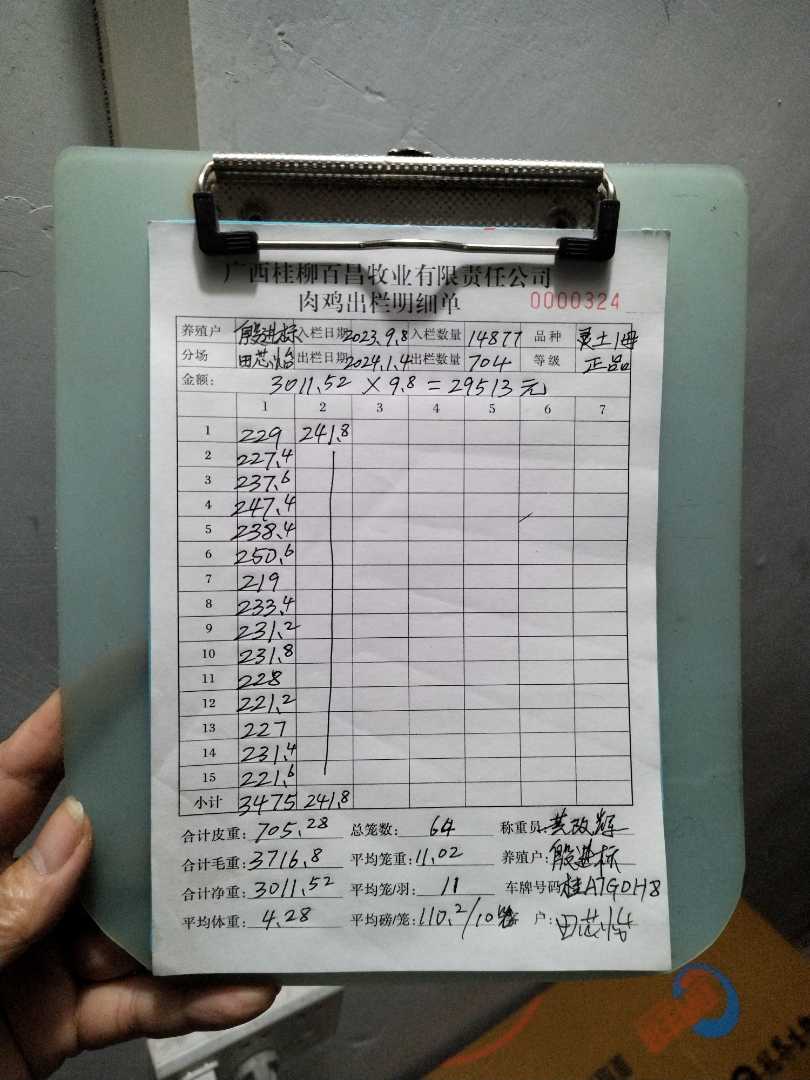 广西桂柳百昌牧业有限责任公司
肉鸡出栏明细单 0000324
养殖户 殷进标 入栏日期 2023.9.8 入栏数量 14877 品种 灵土1母
分场 田芯怡 出栏日期 2024.1.4 出栏数量 704 等级 正品
金额: 3011.52 × 9.8 = 29513元
1 2 3 4 5 6 7
1 229 241.8
2 227.4
3 237.6
4 247.4
5 238.4
6 250.6
7 219
8 233.4
9 231.2
10 231.8
11 228
12 221.2
13 227
14 231.4
15 221.6
小计 3475 241.8
合计皮重: 705.28 总笼数: 64 称重员: 黄政辉
合计毛重: 3716.8 平均笼重: 11.02 养殖户: 殷进标
合计净重: 3011.52 平均笼/羽: 11 车牌号码 桂A7GDH8
平均体重: 4.28 平均磅/笼: 110.2/10笼 户: 田芯怡